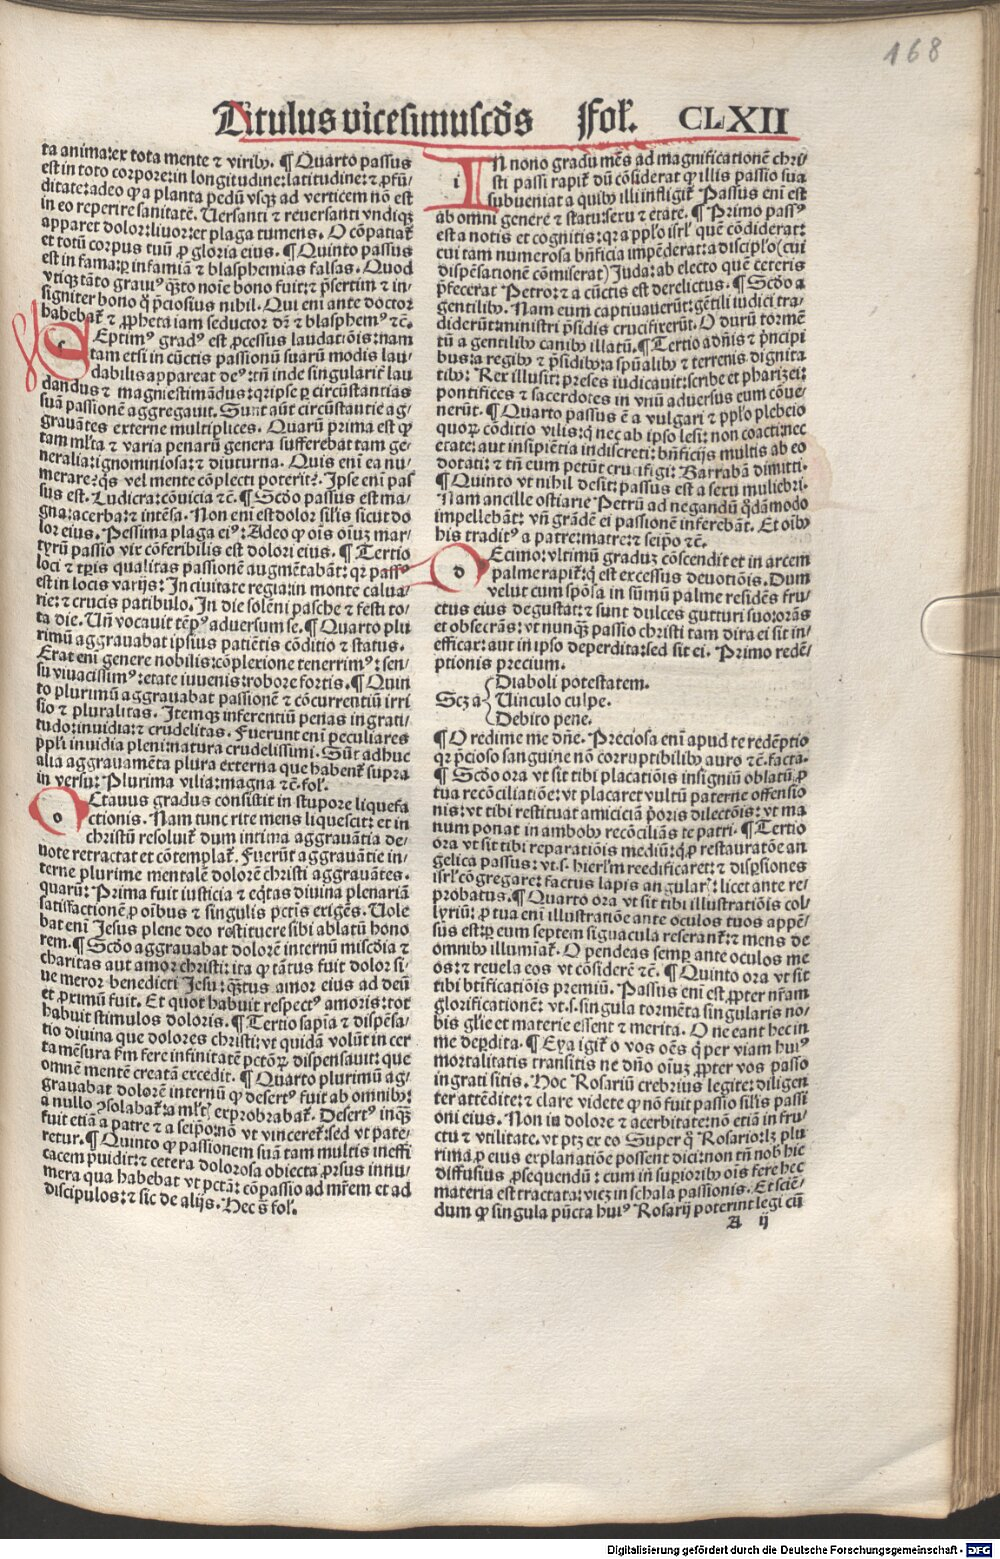 168
Titulus vicesimuscd̄s Fol. CLXII
ta anima: ex tota mente ⁊ viribꝰ. ¶ Quarto passus
est in toto corpore: in longitudine: latitudine: ⁊ ꝓfū/
ditate: adeo ꝙ a planta pedū vsqꝫ ad verticem nō est
in eo reperire sanitatē. Uersanti ⁊ reuersanti vndiqꝫ
apparet dolor: liuor: et plaga tumens. O cōpatiaꝛ
et totū corpus tuū ꝓ gloria eius. ¶ Quinto passus
est in fama: ꝑ infamiā ⁊ blasphemias falsas. Quod
vtiqꝫ tāto grauiꝰ q̄sto noīe bono fuit: ⁊ p̄sertim ⁊ in/
signiter bono q̄ p̄ciosius nihil. Qui eni ante doctor
habebaꝛ ⁊ ꝓpheta iam seductor dꝛ̄ ⁊ blasphemꝰ ⁊c̄.
s Eptimꝰ gradꝰ est ꝓcessus laudatiōis: nam
tam etsi in cūctis passionū suarū modis lau/
dabilis appareat deꝰ: tn̄ inde singularit̄ lau
dandus ⁊ magniestimādus: qꝛ ipse ꝑ circūstantias
suā passionē aggregauit. Sunt aūt circūstantie ag/
grauātes externe multiplices. Quarū prima est ꝙ
tam ml̄ta ⁊ varia penarū genera sufferebat tam ge/
neralia: ignominiosa: ⁊ diuturna. Quis enī ea nu/
merare: q̄s vel mente cōplecti poterit? Ipse eni pas
sus est. Ludicra: cōuicia ⁊c̄. ¶ Scd̄o passus est ma/
gna: acerba: ⁊ intēsa. Non eni est dolor sil̄is sicut do
lor eius. Pessima plaga eiꝰ: Adeo ꝙ oīs oīuꝫ mar/
tyrū passio vix cōferibilis est dolori eius. ¶ Tertio
loci ⁊ tp̄ris qualitas passionē augmētabāt: qꝛ passꝰ
est in locis varijs: In ciuitate regia: in monte calua/
rie: ⁊ crucis patibulo. In die solēni pasche ⁊ festi to/
ta die. Un̄ vocauit tēpꝰ aduersum se. ¶ Quarto plu
rimū aggrauabat ipsius patiētis cōditio ⁊ status.
Erat eni genere nobilis: cōplexione tenerrimꝰ: sen/
su viuacissimꝰ: etate iuuenis: robore fortis. ¶ Quin
to plurimū aggrauabat passionē ⁊ cōcurrentiū irri
sio ⁊ pluralitas. Itemqꝫ inferentiū penas ingrati/
tudo: inuidia: ⁊ crudelitas. Fuerunt enī peculiares
pp̄li inuidia pleni: natura crudelissimi. Sūt adhuc
alia aggrauamēta plura externa que habenꝛ supra
in versu: Plurima vilia: magna ⁊c̄. fol.
o Ctauus gradus consistit in stupore liquefa
ctionis. Nam tunc rite mens liquescit: et in
christū resoluiꝛ dum intima aggrauātia de/
uote retractat et cōtemplaꝛ. Fuerūt aggrauātie in/
terne plurime mentalē dolorē christi aggrauātes.
quarū: Prima fuit iusticia ⁊ eq̄tas diuina plenariā
satisfactionē ꝓ oībus ⁊ singulis pctīs exigēs. Uole
bat enī Jesus plene deo restituere sibi ablatū hono
rem. ¶ Scd̄o aggrauabat dolorē internū mīscdīa ⁊
charitas aut amor christi: ita ꝙ tātus fuit dolor si/
ue meror benedicti Jesu: q̄tus amor eius ad deū
et ꝓximū fuit. Et quot habuit respectꝰ amoris: tot
habuit stimulos doloris. ¶ Tertio sapīa ⁊ dispēsa/
tio diuina que dolores christi: vt quidā volūt in cer
ta mēsura fm̄ fere infinitatē pctōꝝ dispensauit: que
omnē mentē creatā excedit. ¶ Quarto plurimū ag/
grauabat dolorē internū ꝙ desertꝰ fuit ab omnibꝰ:
a nullo ꝯsolabaꝛ: a ml̄tꝭ exprobrabaꝛ. Desertꝰ inq̄ꝫ
fuit etiā a patre ⁊ a seipo: nō vt vinceret: sed vt pate/
retur. ¶ Quinto ꝙ passionem suā tam multis ineffi
cacem p̄uidit: ⁊ cetera dolorosa obiecta ꝓrsus innu/
mera qua habebat vt pctā: cōpassio ad mr̄em et ad
discipulos: ⁊ sic de alijs. Hec s̄ fol.
i N nono gradu mēs ad magnificationē chri/
sti passi rapiꝛ dū cōsiderat ꝙ illis passio sua
subueniat a quibꝰ illi infligiꝛ. Passus enī est
ab omni genere ⁊ statu: sexu ⁊ etate. ¶ Primo passꝰ
est a notis et cognitis: qꝛ a pp̄lo isrl̄ quē cōdiderat:
cui tam numerosa bn̄ficia impēderat: a discip̄lo (cui
dispēsationē cōmiserat) Juda: ab electo quē ceteris
p̄fecerat Petro: ⁊ a cūctis est derelictus. ¶ Scd̄o a
gentilibꝰ. Nam eum captiuauerūt: gētili iudici tra/
diderūt: ministri p̄sidis crucifixerūt. O durū tormē
tū a gentilibꝰ canibꝰ illatū. ¶ Tertio a dn̄is ⁊ p̄ncipi
bus: a regibꝰ ⁊ p̄sidibꝰ: a spūalibꝰ ⁊ terrenis dignita
tibꝰ: Rex illusit: preses iudicauit: scribe et pharizei:
pontifices ⁊ sacerdotes in vnū aduersus eum cōue/
nerūt. ¶ Quarto passus ē a vulgari ⁊ pp̄lo plebeio
quoꝝ cōditio vilis: q̄ nec ab ipso lesi: non coacti: nec
ecate: aut insipiētia indiscreti: bn̄ficijs multis ab eo
dotati: ⁊ tn̄ eum petūt crucifigi: Barrabā dimitti.
¶ Quinto vt nihil desit: passus est a sexu muliebri.
Nam ancille ostiarie Petrū ad negandū q̄dāmodo
impellebāt: vn̄ grādē ei passionē inferebāt. Et oībꝰ
his traditꝰ a patre: matre: ⁊ seip̄o ⁊c̄.
d Ecimo: vltimū graduꝫ cōscendit et in arcem
palme rapiꝛ: q̄ est excessus deuotiōis. Dum
velut cum spōsa in sūmū palme residēs fru/
ctus eius degustat: ⁊ sunt dulces gutturi suo: orās
et obsecrās: vt nunqꝫ passio christi tam dira ei sit in/
efficax: aut in ipso deperdita: sed sit ei. Primo redē/
ptionis precium.
Diaboli potestatem.
Scꝫ a Uinculo culpe.
Debito pene.
¶ O redime me dn̄e. Preciosa enī apud te redēptio
qꝛ p̄cioso sanguine nō corruptibilibꝰ auro ⁊c̄. facta.
¶ Scd̄o ora vt sit tibi placatiōis insigniū oblatū ꝓ
tua recōciliatiōe: vt placaret vultū paterne offensio
nis: vt tibi restituat amiciciā p̄oris dilectōis: vt ma
num ponat in ambobꝰ recōciliās te patri. ¶ Tertio
ora vt sit tibi reparatiōis mediū: q̄ ꝓ restauratōe an
gelica passus: vt.s. hierl̄m reedificareꝛ: ⁊ disp̄siones
isrl̄ cōgregare: factus lapis angularꝭ: licet ante re/
probatus. ¶ Quarto ora vt sit tibi illustratiōis col/
lyriū: ꝓ tua eni illustratiōe ante oculos tuos appē/
sus est: ꝑ eum septem signacula reseranꝛ: ⁊ mens de
omnibꝰ illumiāꝛ. O pendeas semꝑ ante oculos me
os: ⁊ reuela eos vt cōsiderē ⁊c̄. ¶ Quinto ora vt sit
tibi btīficatiōis premiū. Passus enī est ꝓpter nr̄am
glorificationē: vt.s. singula tormēta singularis no/
bis gl̄ie et materie essent ⁊ merita. O ne eant hec in
me deꝑdita. ¶ Eya igiꝛ o vos oēs q̄ ꝑ viam huiꝰ
mortalitatis transitis ne dn̄o oīuꝫ ꝓpter vos passo
ingrati sitis. Hoc Rosariū crebrius legite: diligen
ter attēdite: ⁊ clare videte ꝙ nō fuit passio sil̄is passi
oni eius. Non in dolore ⁊ acerbitate: nō etiā in fru/
ctu ⁊ vtilitate. vt ptꝫ ex eo Super q̄ Rosario: lꝫ plu
rima ꝓ eius explanatiōe possent dici: non tn̄ nob̄ hic
diffusius ꝓsequendū: cum in sup̄ioribꝰ oīs fere hec
materia est tractata: vicꝫ in schala passionis. Et sciē/
dum ꝙ singula pūcta huiꝰ Rosarij poterint legi cū
A ij
Digitalisierung gefördert durch die Deutsche Forschungsgemeinschaft - DFG